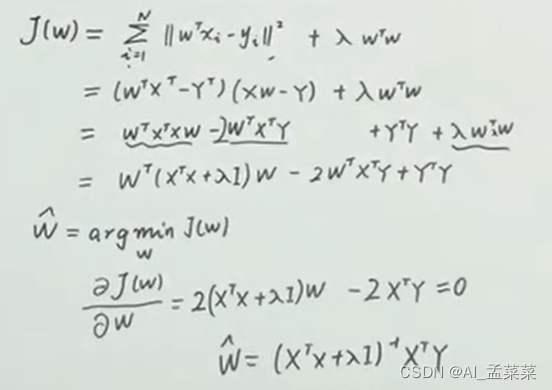 J(w) = \sum_{i=1}^{N} ||w^T x_i - y_i||^2 + λ w^T w
= (w^T X^T - Y^T)(Xw - Y) + λ w^T w
= w^T X^T X w - 2 w^T X^T Y + Y^T Y + λ w^T w
= W^T (X^T X + λI) W - 2 W^T X^T Y + Y^T Y
\hat{W} = argmin_w J(w)
\frac{∂J(w)}{∂W} = 2(X^T X + λI)W - 2 X^T Y = 0
\hat{W} = (X^T X + λI)^{-1} X^T Y
CSDN @AI_孟菜菜